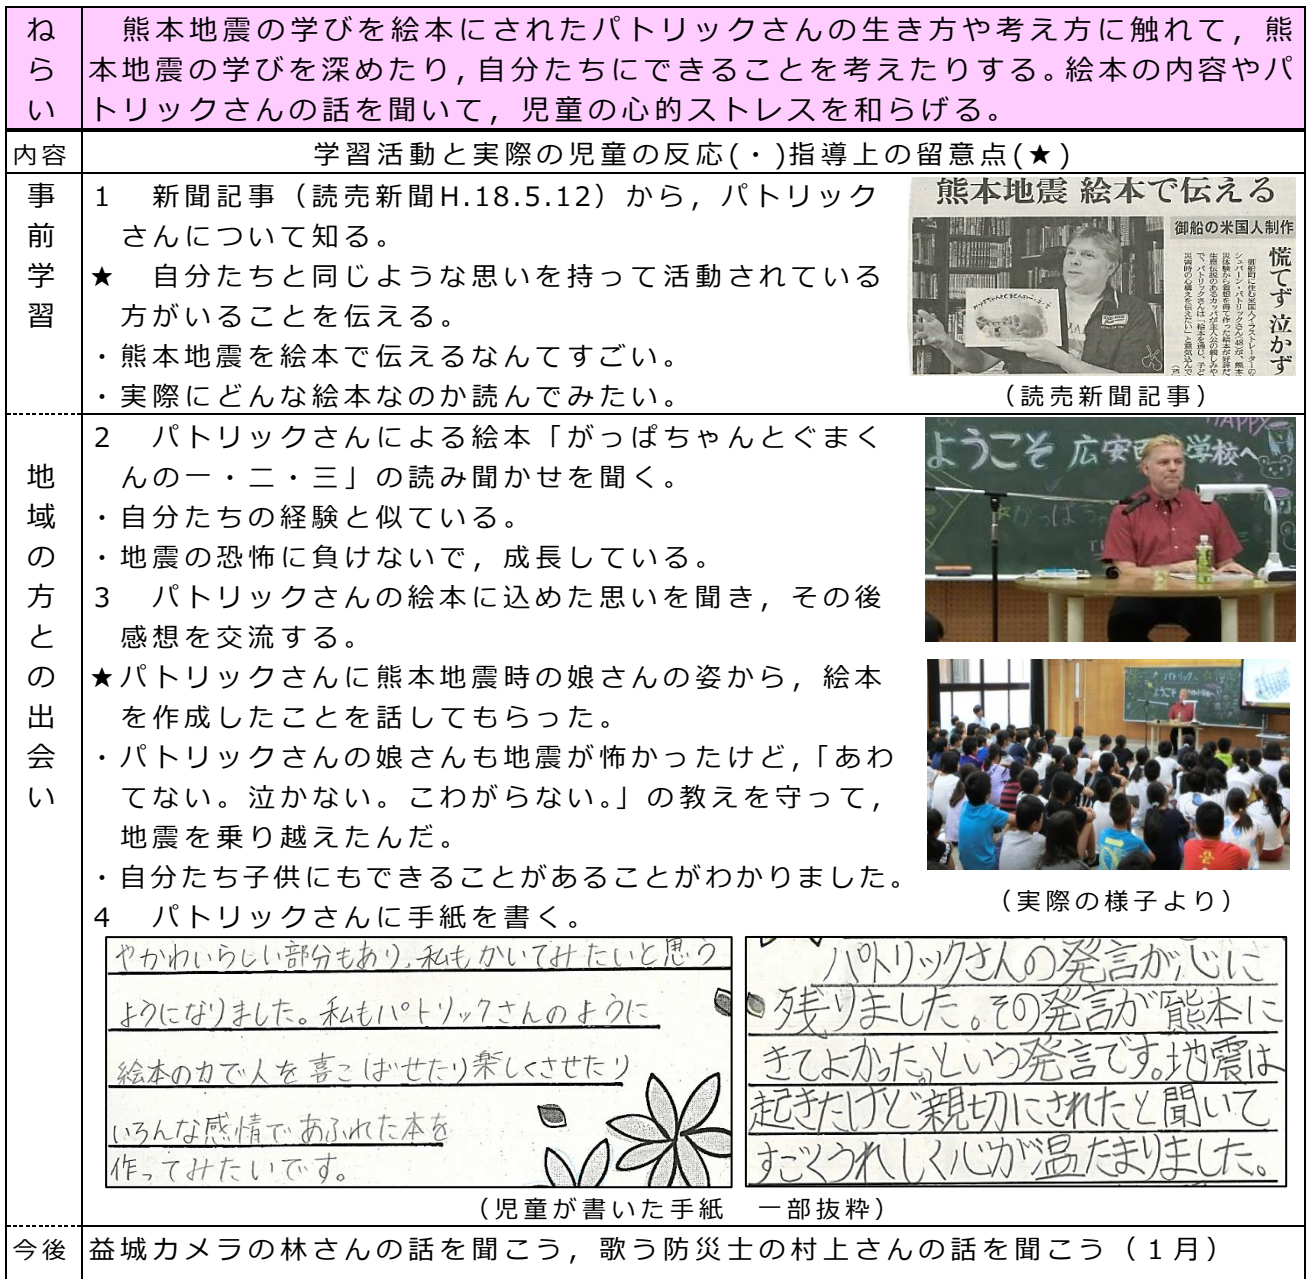 ねらい
熊本地震の学びを絵本にされたパトリックさんの生き方や考え方に触れて，熊
本地震の学びを深めたり，自分たちにできることを考えたりする。絵本の内容やパ
トリックさんの話を聞いて，児童の心的ストレスを和らげる。
内容
学習活動と実際の児童の反応(・)指導上の留意点(★)
事前学習
1　新聞記事（読売新聞H.18.5.12）から，パトリック
さんについて知る。
★　自分たちと同じような思いを持って活動されている
方がいることを伝える。
・熊本地震を絵本で伝えるなんてすごい。
・実際にどんな絵本なのか読んでみたい。
熊本地震 絵本で伝える
御船の米国人制作
慌てず 泣かず
（読売新聞記事）
地域の方との出会い
2　パトリックさんによる絵本「がっぱちゃんとぐまく
んの一・二・三」の読み聞かせを聞く。
・自分たちの経験と似ている。
・地震の恐怖に負けないで，成長している。
3　パトリックさんの絵本に込めた思いを聞き，その後
感想を交流する。
★パトリックさんに熊本地震時の娘さんの姿から，絵本
を作成したことを話してもらった。
・パトリックさんの娘さんも地震が怖かったけど，「あわ
てない。泣かない。こわがらない。」の教えを守って，
地震を乗り越えたんだ。
・自分たち子供にもできることがあることがわかりました。
4　パトリックさんに手紙を書く。
HAPPY
ようこそ 広安西 学校へ
（実際の様子より）
やかわいらしい部分もあり、私もかいてみたいと思う
ようになりました。私もパトリックさんのように
絵本の力で人を喜こばせたり楽しくさせたり
いろんな感情であふれた本を
作ってみたいです。
パトリックさんの発言が心に
残りました。その発言が「熊本に
きてよかった。」という発言です。地震は
起きたけど親切にされたと聞いて
すごくうれしく心が温たまりました。
（児童が書いた手紙　一部抜粋）
今後
益城カメラの林さんの話を聞こう，歌う防災士の村上さんの話を聞こう（１月）